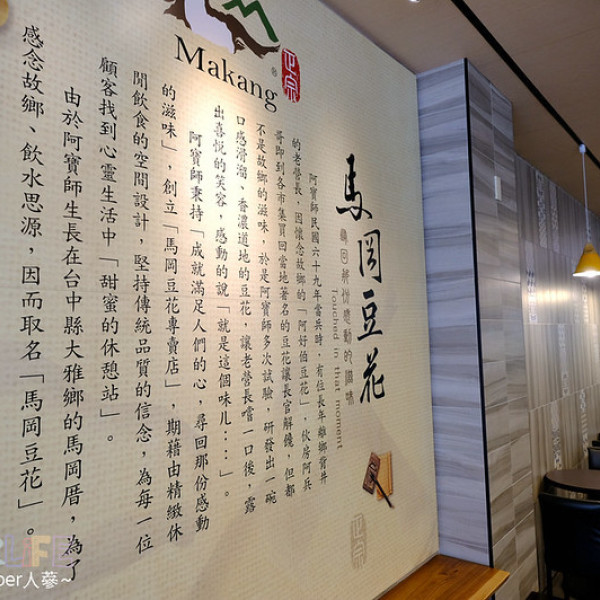 Makang®
正宗
馬岡豆花
尋回那份感動的滋味
Touched in that moment
阿寶師民國六十九年當兵時，有位長年離鄉背井
的老營長，因懷念故鄉的「阿好伯豆花」，伙房阿兵
哥即到各市集買回當地著名的豆花讓長官解饞，但都
不是故鄉的滋味，於是阿寶師多次試驗，研發出一碗
口感滑溜、香濃道地的豆花，讓老營長嚐一口後，露
出喜悅的笑容，感動的說「就是這個味儿：：」。
阿寶師秉持「成就滿足人們的心，尋回那份感動
的滋味」，創立「馬岡豆花專賣店」，期藉由精緻休
閒飲食的空間設計，堅持傳統品質的信念，為每一位
顧客找到心靈生活中「甜蜜的休憩站」。
由於阿寶師生長在台中縣大雅鄉的馬岡厝，為了
感念故鄉、飲水思源，因而取名「馬岡豆花」。
正宗
LIFE
per人蔘~